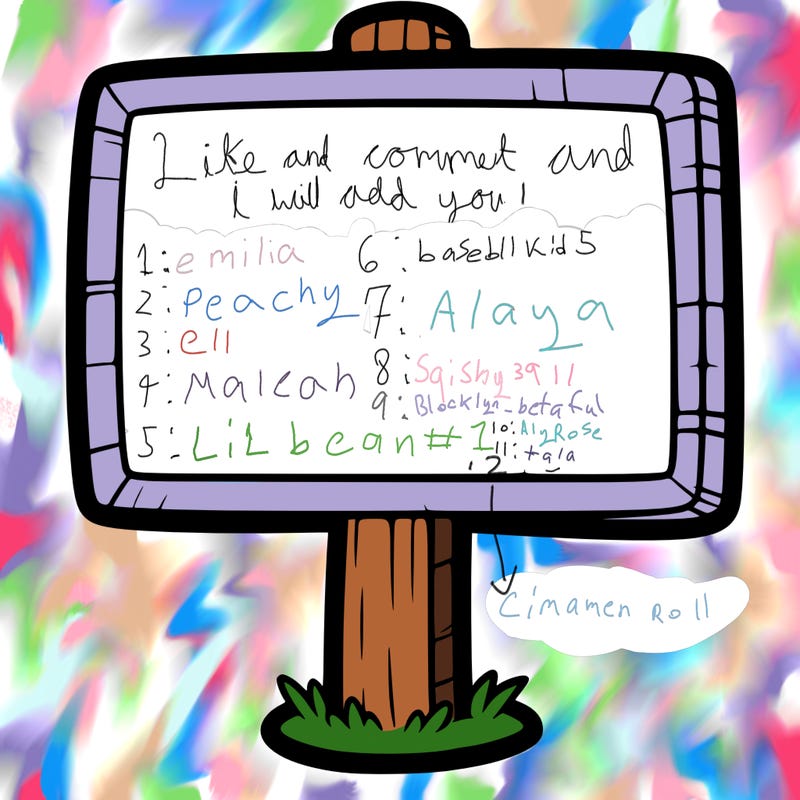 Like and commet and
i will add you!
1: emilia
2: Peachy
3: ell
4: Maleah
5: LiL bean#1
6: basebllkid5
7: Alaya
8: Sqishy3911
9: Blocklyn_betaful
10: AlyRose
11: tala
12
Cimamen Roll